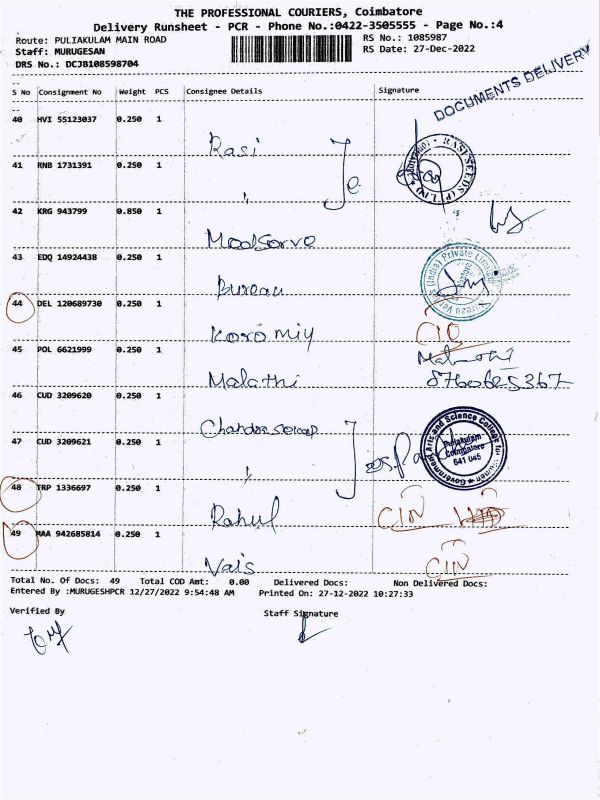 THE PROFESSIONAL COURIERS, Coimbatore
Delivery Runsheet - PCR - Phone No.:0422-3505555 - Page No.:4
Route: PULIAKULAM MAIN ROAD RS No.: 1085987
Staff: MURUGESAN RS Date: 27-Dec-2022
DRS No.: DCJB108598704
DOCUMENTS DELIVERY
S No Consignment No Weight PCS Consignee Details Signature
40 HVI 55123037 0.250 1
Rasi
41 RNB 1731391 0.250 1
"
RASI SEEDS (P) LTD
42 KRG 943799 0.850 1
Medserve
43 EDQ 14924438 0.250 1
Bureau
(India) Private Limited
44 DEL 120689730 0.250 1
Koromiy
45 POL 6621999 0.250 1
Malathi
8760685367
46 CUD 3209620 0.250 1
47 CUD 3209621 0.250 1
"
Government Arts and Science College for Women
Puliakulam
Coimbatore
641 045
48 TRP 1336697 0.250 1
Rahul CIN
49 MAA 942685814 0.250 1
Vais CIN
Total No. Of Docs: 49 Total COD Amt: 0.00 Delivered Docs: Non Delivered Docs:
Entered By :MURUGESHPCR 12/27/2022 9:54:48 AM Printed On: 27-12-2022 10:27:33
Verified By Staff Signature